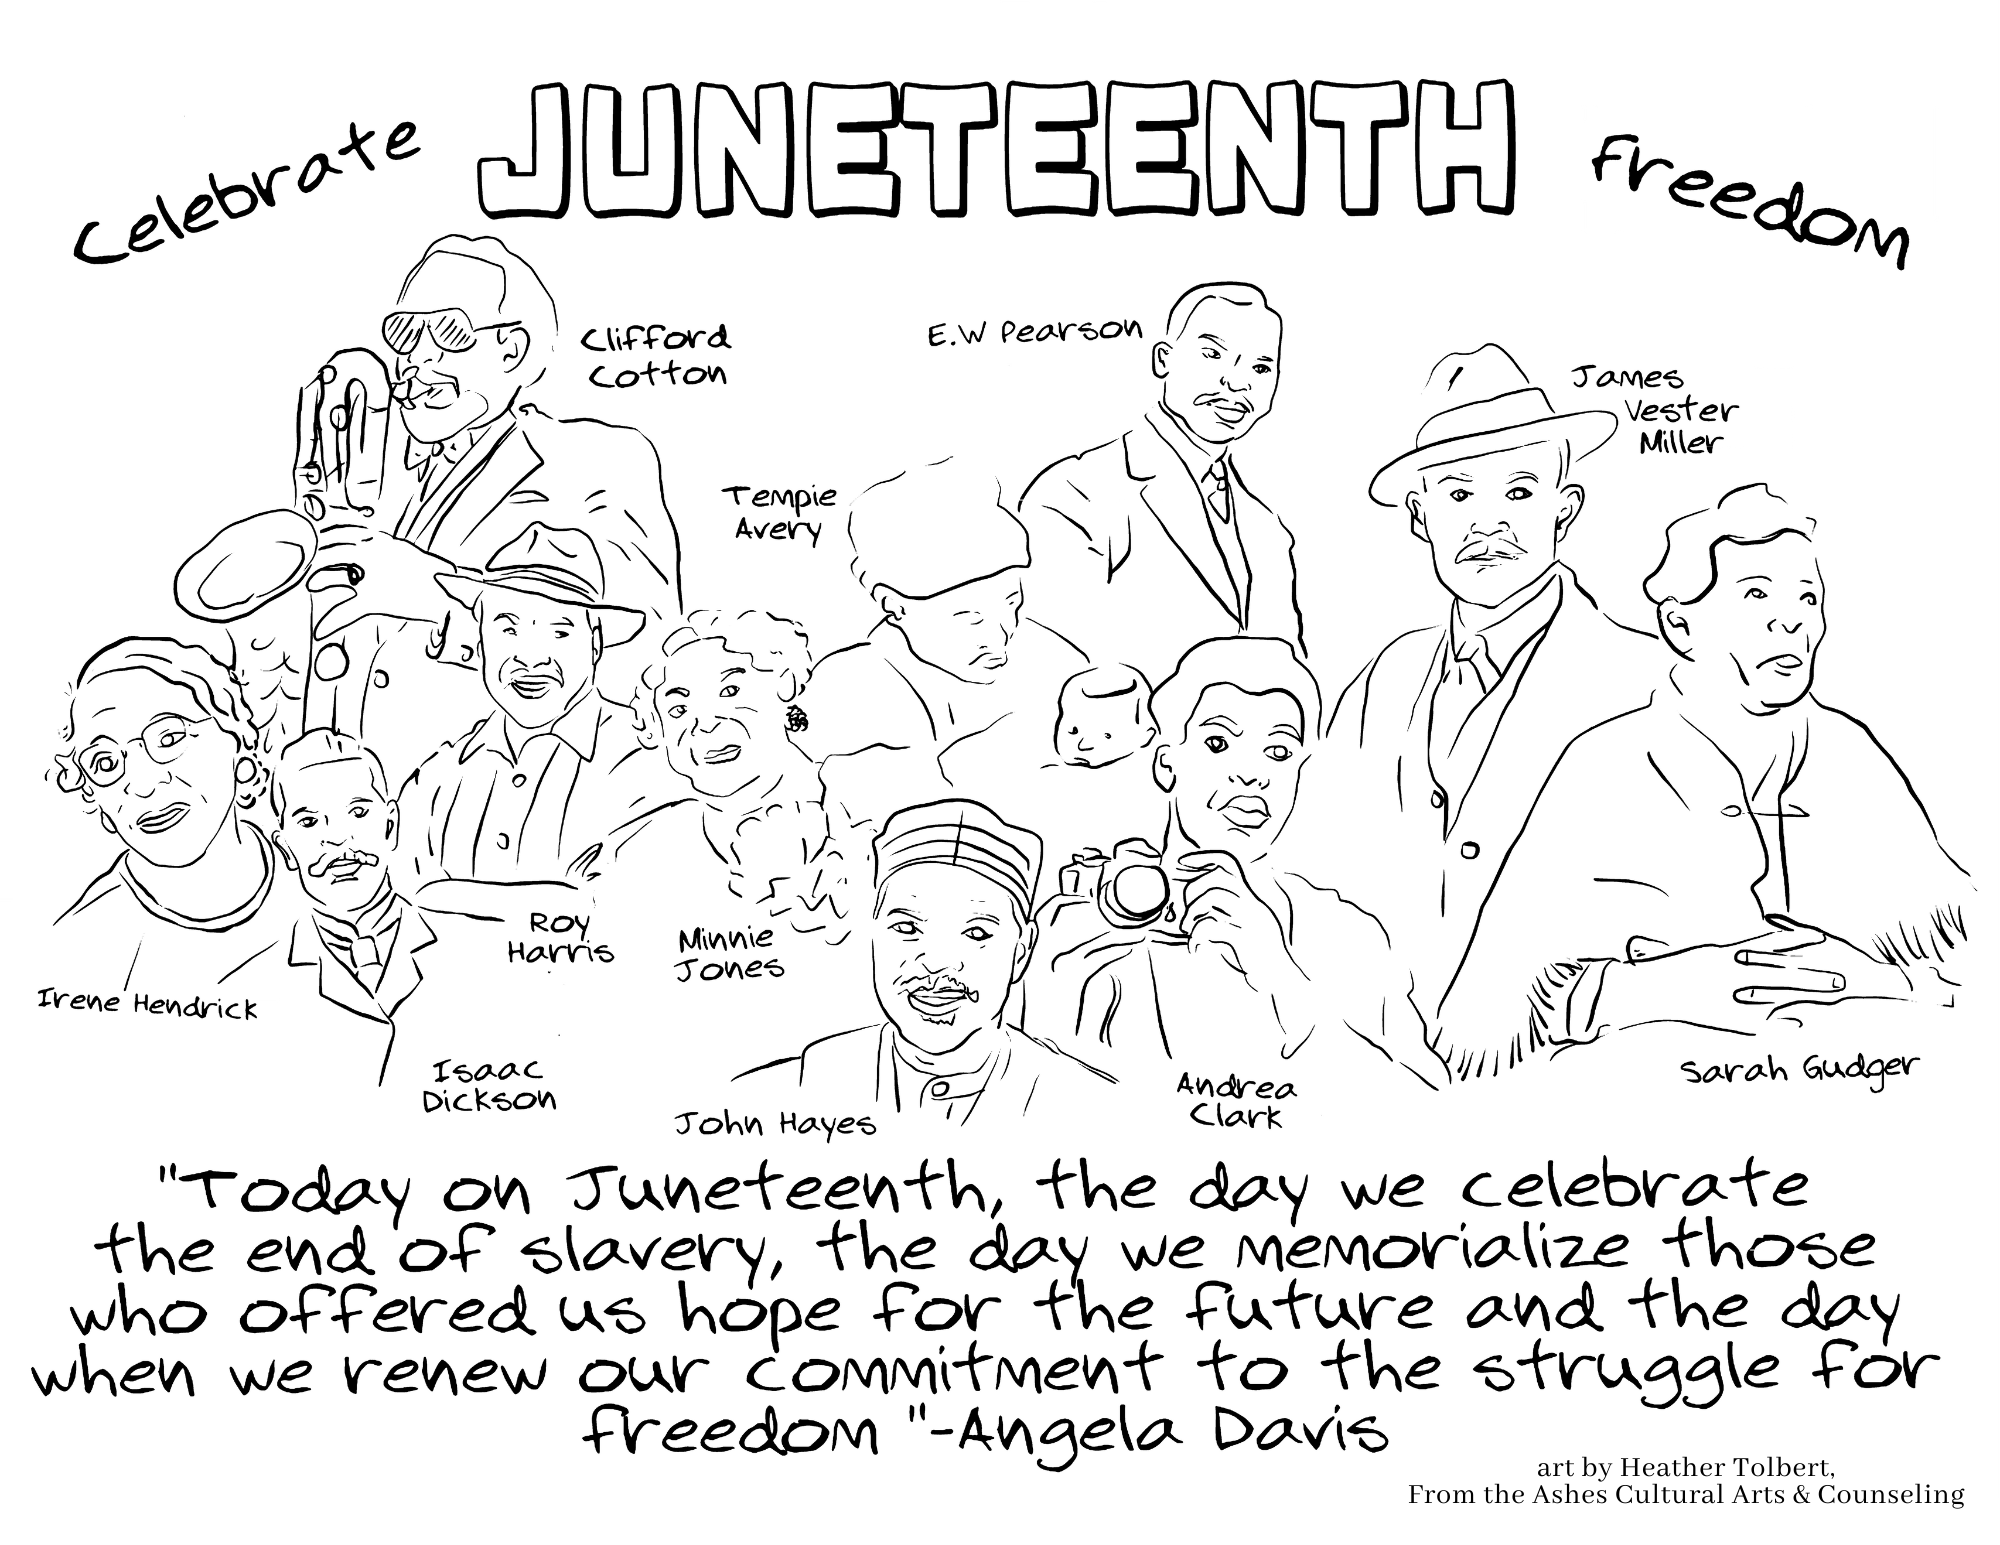 Celebrate JUNETEENTH freedom
Clifford
Cotton
E.W Pearson
James
Vester
Miller
Tempie
Avery
Roy
Harris
Minnie
Jones
Irene Hendrick
Isaac
Dickson
John Hayes
Andrea
Clark
Sarah Gudger
"Today on Juneteenth, the day we celebrate
the end of slavery, the day we memorialize those
who offered us hope for the future and the day
when we renew our commitment to the struggle for
freedom "-Angela Davis
art by Heather Tolbert,
From the Ashes Cultural Arts & Counseling